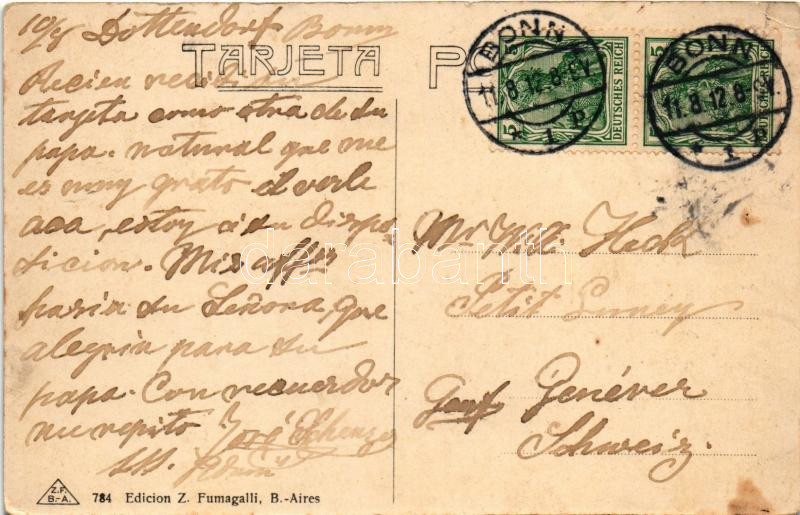 10/8 Dottendorf Bonn
TARJETA P
Recien recibi su
tarjeta como otra de su
papa. natural que me
es muy grato el verle
aca, estoy á su dispo-
sicion. Mis
para su Señora, que
alegria para su
papa. Con recuerdos
me repito José
SS.
BONN
11.8.12.8-9V.
* 1 P
5
DEUTSCHES REICH
BONN
11.8.12.8-9V.
* 1 P
5
DEUTSCHES REICH
Mr Heck
Petit
Genf Genéver
Schweiz.
darabanth
Z.F.
B.-A.
784 Edicion Z. Fumagalli, B.-Aires